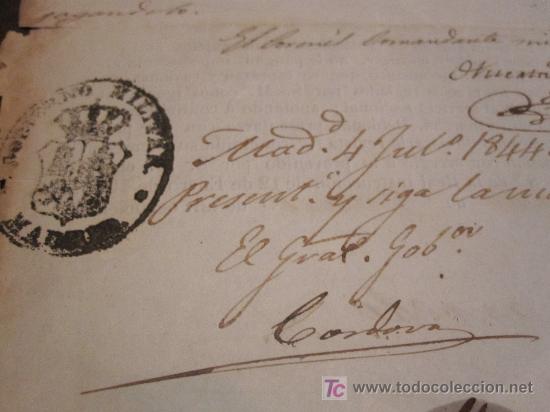 pagandole.
El Coronel Comandante
GOBIERNO MILITAR
MADRID
Mad.d 4 Jul.o 1844.
Present.o y siga la
El Gral. Gob.or
Cordova
TC www.todocoleccion.net